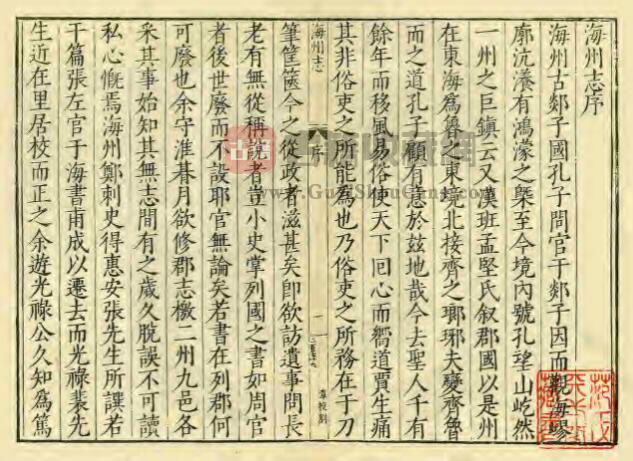 海州志序
海州古郯子國孔子問官于郯子因而觀海
廓沆瀁有鴻濛之槩至今境內號孔望山屹然
一州之巨鎮云又漢班孟堅氏叙郡國以是州
在東海為魯之東境北接齊之瑯琊夫變齊魯
而之道孔子顧有意於玆地哉今去聖人千有
餘年而移風易俗使天下回心而嚮道賈生痛
其非俗吏之所能為也乃俗吏之所務在于刀
海州志
序
一
筆筐篋今之從政者滋甚矣卽欲訪遺事問長
老有無從稱說者豈小史掌列國之書如周官
者後世廢而不設耶官無論矣若書在列郡何
可廢也余守淮朞月欲修郡志檄二州九邑各
采其事始知其無志間有之歲久脫誤不可讀
私心慨焉海州鄭刺史得惠安張先生所譔若
干篇張左官于海書甫成以遷去而光祿裴先
生近在里居校而正之余遊光祿公久知為篤